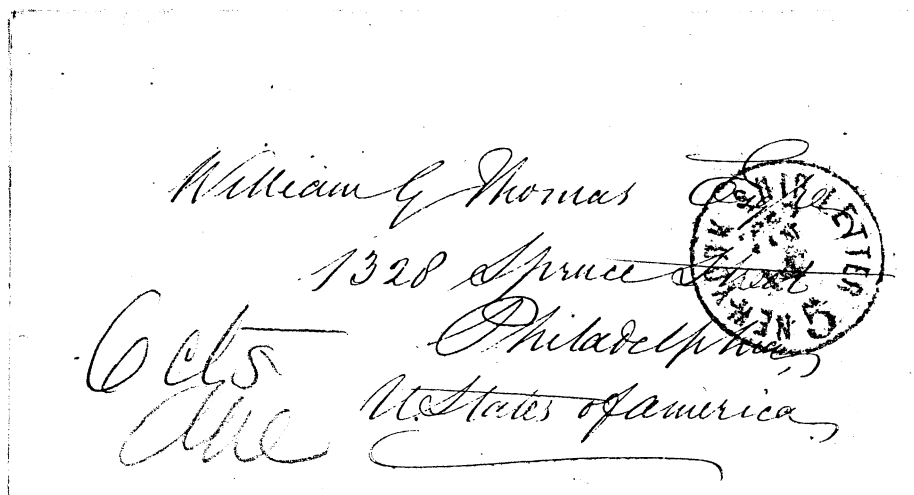 William G Thomas Esqre
1328 Spruce Street
Philadelphia,
U. States of America,
6 cts
Due
NEW YORK SHIP LETTER
5